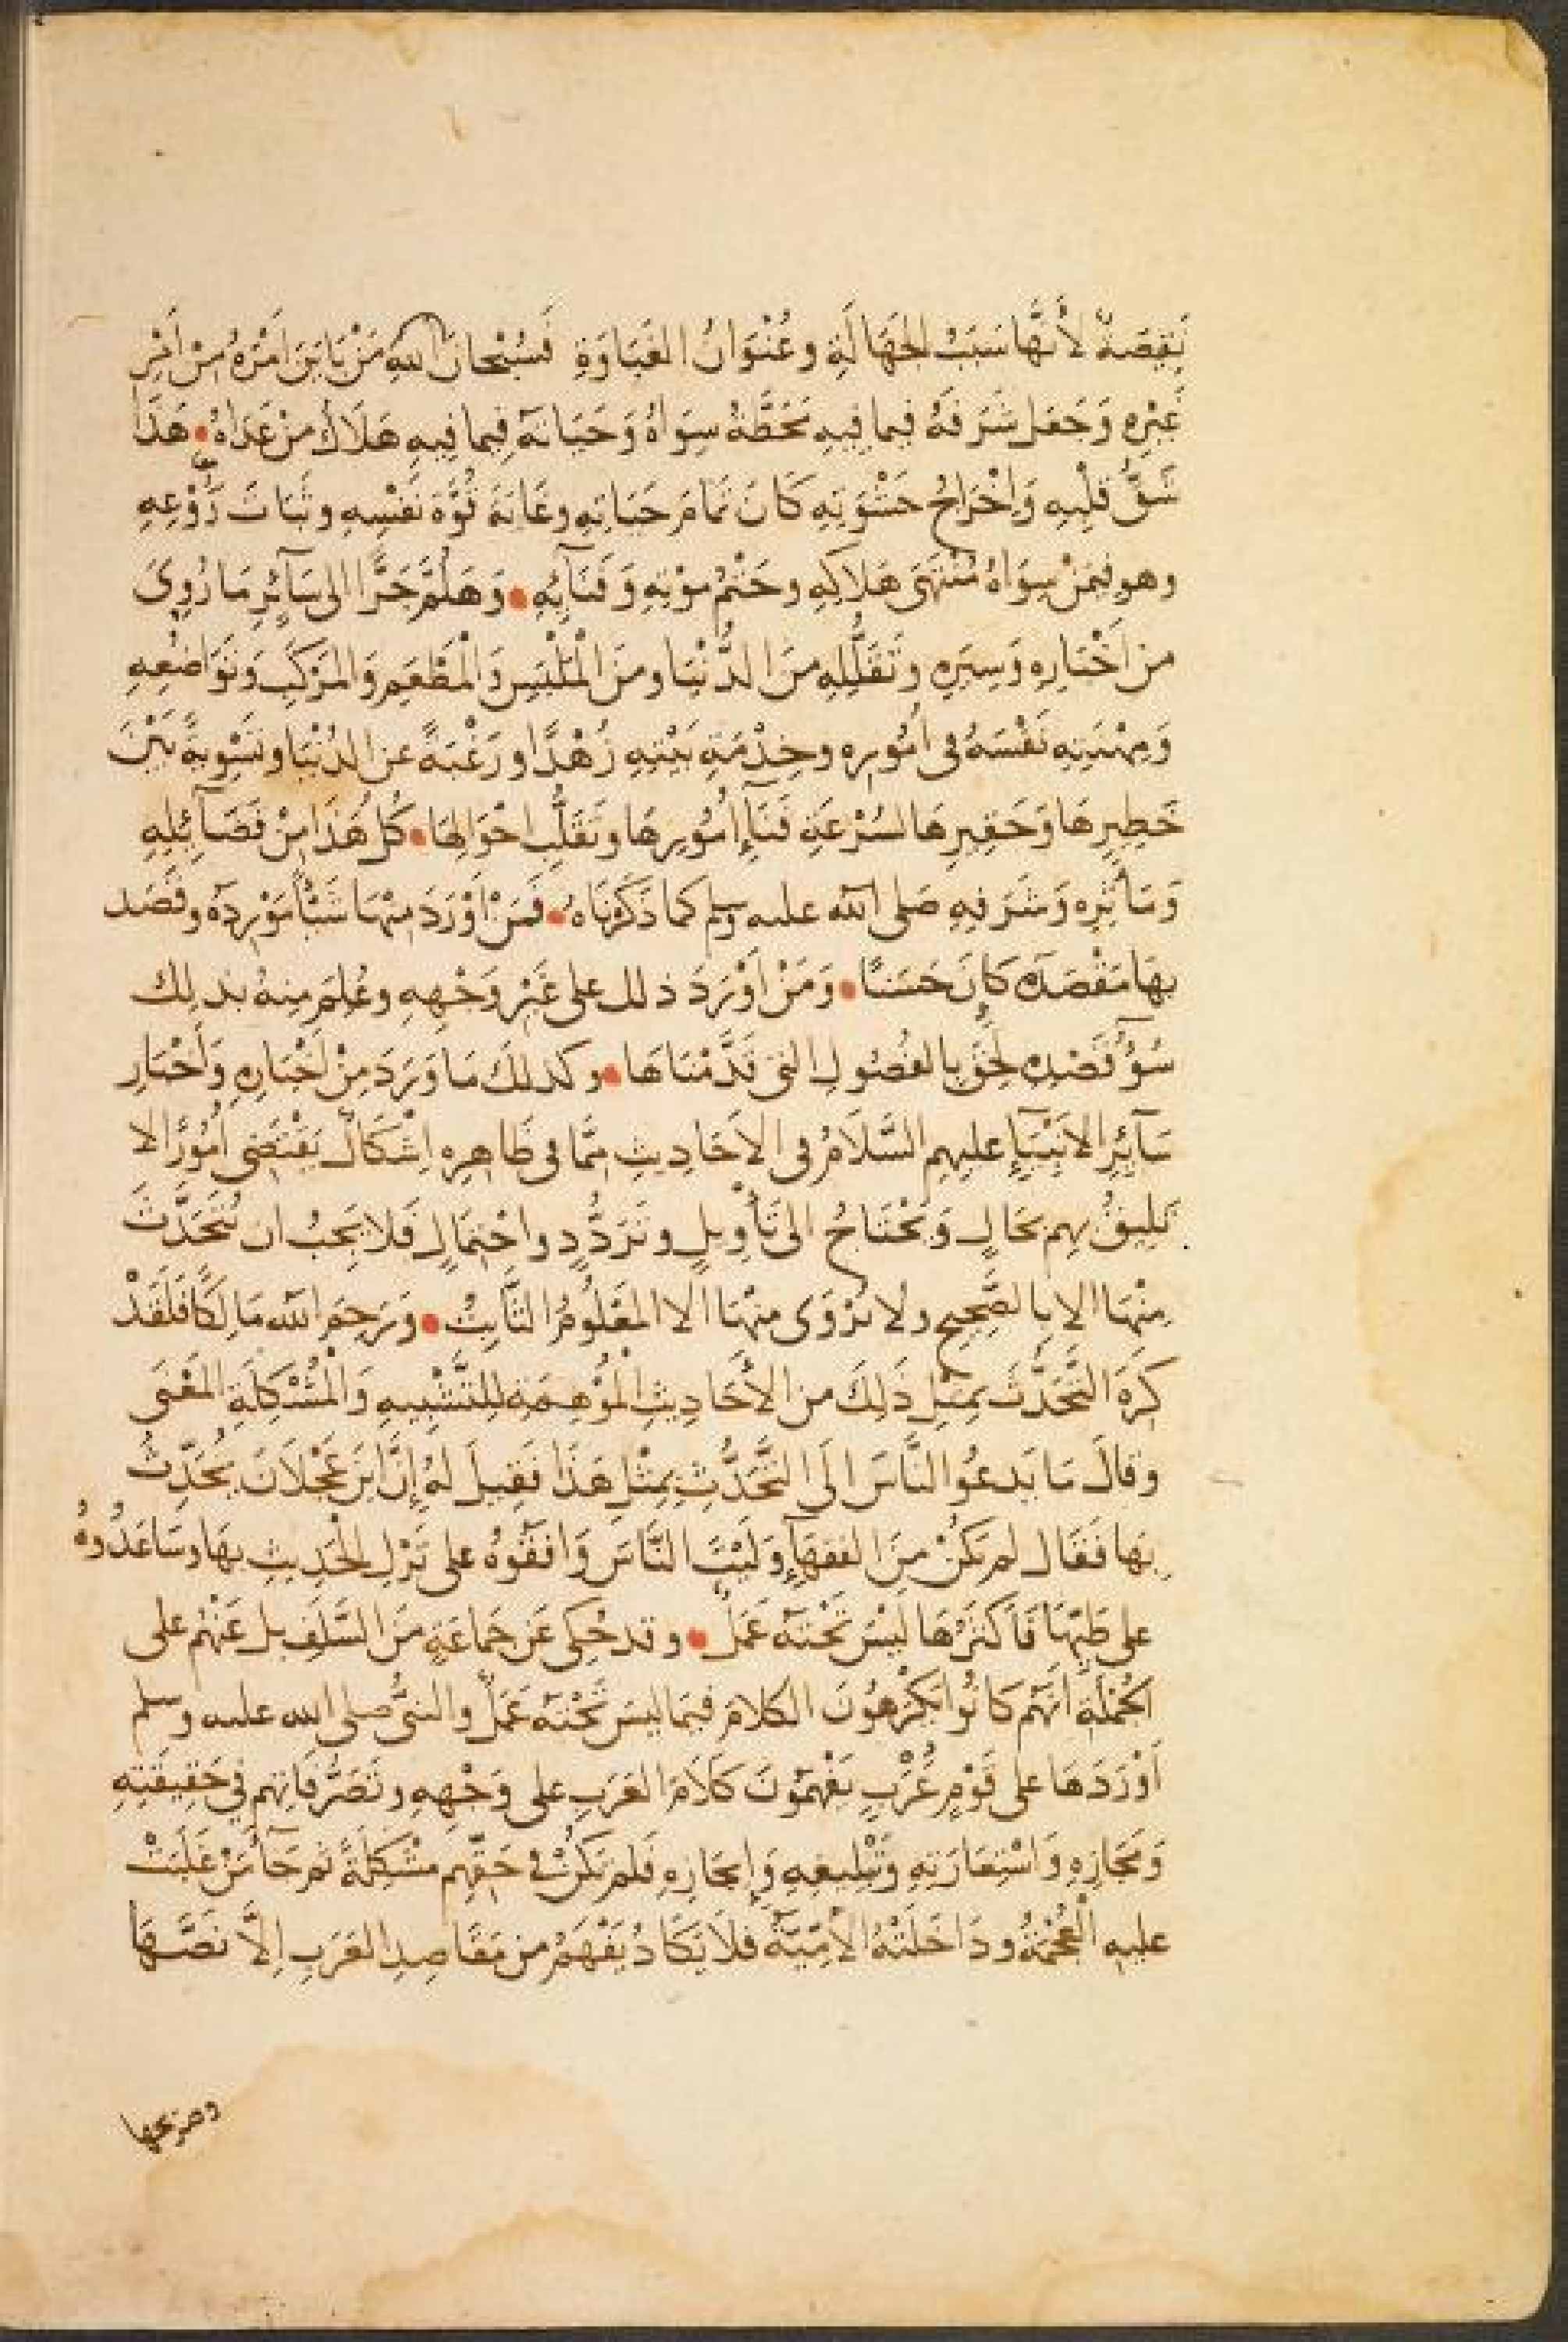 نَقِصَةٌ لأنَّها سَبَبُ الجَهَالَةِ وعُنْوَانُ الغَبَاوَةِ فَسُبْحَانَ اللهِ مَنْ بَايَنَ اَمْرَهُ مِنْ اَمْرِ
غَيْرِهِ وَجَعَلَ شَرَفَهُ فيما فِيهِ مَحَطَّةُ سِوَاهُ وَحَيَاتَهُ فِيما فِيهِ هَلَاكُ مَنْ عَدَاهُ • هَذَا
شَقُّ قَلْبِهِ وَاِخْرَاجُ حَشْوَتِهِ كَانَ تَمَامَ حَيَاتِهِ وغَايَةَ قُوَّةِ نَفْسِهِ وثَبَاتَ رَوْعِهِ
وهو فِيمَنْ سِوَاهُ مُنْتَهَى هَلَاكِهِ وحَتْمُ مَوْتِهِ وَفَنَائِهِ • وَهَلُمَّ جَرًّا الى سَآئِرِ مَا رُوِىَ
من اَخْبَارِهِ وَسِيَرِهِ وتَقَلُّلِهِ مِنَ الدُّنْيَا ومِنَ الْمَلْبَسِ وَالْمَطْعَمِ وَالمَرْكَبِ وَتَوَاضُعِهِ
وَمِهْنَتِهِ نَفْسَهُ فى اُمُورِهِ وخِدْمَةِ بَيْتِهِ زُهْدًا ورَغْبَةً عن الدُنْيَا وتَسْوِيةً بَيْنَ
خَطِيرِهَا وَحَقِيرِهَا لسُرْعَةِ فَنَآءِ اُمُورِهَا وتَقَلُّبِ اَحْوَالِهَا • كُلُّ هَذَا مِنْ فَضَآئِلِهِ
وَمَآثِرِهِ وَشَرَفِهِ صَلى الله عليه وسلم كما ذَكَرْنَاهُ • فَمَنْ اَوْرَدَ مِنْهَا شَيْأً مَوْرِدَهُ وقَصَد
بِهَا مَقْصَدَهُ كَانَ حَسَنًا • وَمَنْ اَوْرَدَ ذلك على غَيْرِ وَجْهِهِ وعُلِمَ مِنهُ بذلِك
سُوْءُ قَصْدِهِ لَحِقَ بالفُصُولِ التى قَدَّمْنَاهَا • وكذلكَ مَا وَرَدَ مِنْ اَخْبَارِهِ وَأَخْبَارِ
سَآئِرِ الاَنْبِيَآءِ عليهم السَّلَامُ فى الاَحَادِيثِ مِمَّا فى ظَاهِرِهِ اِشْكَالٌ يَقْتَضِى اُمُورًا لا
تَلِيقُ بهِم بحَالٍ وَتَحْتَاجُ الى تَأْوِيلٍ وتَرَدُّدِ واحْتِمَالٍ فَلا يَجِبُ ان يُتَحَدَّثَ
مِنْهَا الا بالصَّحِيحِ ولا يُرْوَى مِنْهَا الا المَعْلُومُ الثَّابِتُ • وَرَحِمَ الله مَالِكًا فَلَقَدْ
كَرِهَ التَّحَدُّثَ بمِثْلِ ذَلِكَ من الأحَادِيثِ الْمُوْهِمَةِ للتَّشْبِيهِ وَالْمُشْكِلَةِ المَعْنَى
وقالَ مَا يَدعُوا النَّاسَ الَى التَّحَدُّثِ بِمِثْلِ هَذَا فَقِيلَ لهُ إنَّ ابْنَ عَجْلَانَ يُحَدِّثُ
بِهَا فَقَال لم يَكُنْ مِنَ الفقهَآءِ وَلَيْتَ النَّاسَ وَافَقُوهُ على تَرْكِ الحَدِيثِ بِهَا وسَاعَدُوهُ
على طَيِّهَا فَأَكْثَرُهَا لَيْسَ تَحْتَهُ عَمَلٌ • وقد حُكِى عَن جَماعَةٍ مِنَ السَّلَفِ بل عَنْهُم على
الجُمْلَةِ اَنَّهُم كَانُوا يَكْرَهُونَ الكلامَ فيمَا ليسَ تَحْتَهُ عَمَلٌ والنبيُّ صلى الله عليه وسلم
اَوْرَدَهَا على قَوْمٍ عُرْبٍ يَفْهَمُونَ كَلَامَ العَرَبِ على وَجْهِهِ وتَصَرُّفَاتِهم في حَقِيقَتِهِ
وَمَجَازِهِ وَاسْتِعَارَتِهِ وتَبْلِيغِهِ وَإيجَازِهِ فَلم تَكُنْ في حَقِّهِم مُشْكِلَةً ثم جَآءَ مَنْ غَلَبَتْ
عليهِ الْعُجْمَةُ ودَاخَلَتْهُ الاُمِّيَّةُ فَلَا يَكَادُ يَفْهَمُ من مَقَاصِدِ العَرَبِ اِلَّا نَصَّهَا
وصريحها